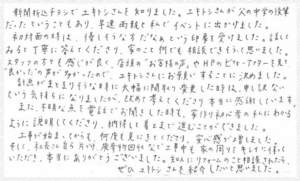 新聞折込チラシでユキトシさんを知りました。ユキトシさんが父の中学の後輩
だったということもあり、早速両親と私でイベントに出かけました。
初対面の時は、優しそうな方だなぁという印象を受けました。話して
みると丁寧に答えてくださり、家のこと何でも相談できそうに思いました。
スタッフの方も感じが良く、店頭の"お客様の声"やHPのビフォーアフターを見て
"良かった"の声が多かったので、ユキトシさんにお願いすることに決めました。
計画がまとまりそうな時に大幅に間取り変更した時は、申し訳ない
という気持ちになりましたが、改めて考えてくださり本当に感謝しています。
また、不明な点を電話でお聞きした時も、家作り初心者の私にわかる
ように説明してくださり、納得して着工まで進むことができました。
工事が始まってからも、何度も見にきてくださり、安心感が増しました。
そして、社長さん自ら片づけ、廃材の回収など工事中も家の周りをキレイに保って
いただき、本当にありがとうございました。知人にリフォームのこと相談されたら、
ぜひユキトシさんを紹介したいと思いました。